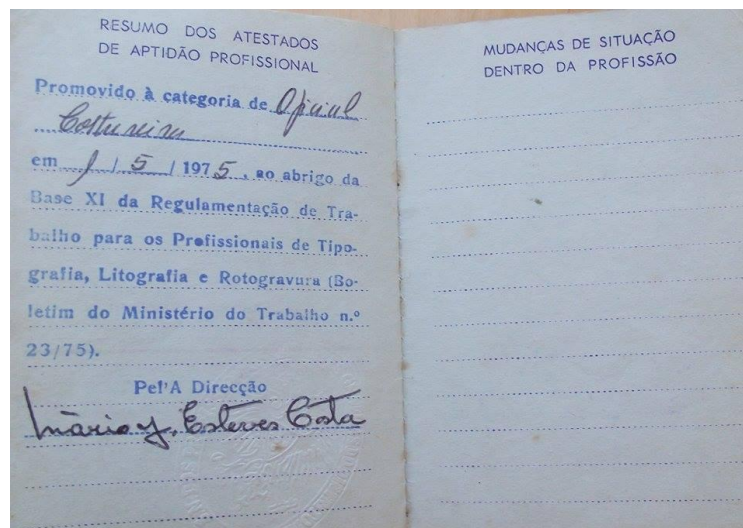 RESUMO DOS ATESTADOS
DE APTIDÃO PROFISSIONAL
Promovido à categoria de Oficial
Costureira
em 1 / 5 / 1975, ao abrigo da
Base XI da Regulamentação de Tra-
balho para os Profissionais de Tipo-
grafia, Litografia e Rotogravura (Bo-
letim do Ministério do Trabalho n.º
23/75).
Pel'A Direcção
Mário J. Esteves Costa
MUDANÇAS DE SITUAÇÃO
DENTRO DA PROFISSÃO